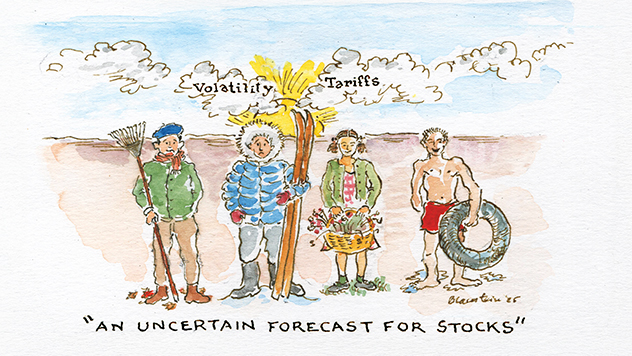 Volatility Tariffs
Blaustein '25
"AN UNCERTAIN FORECAST FOR STOCKS"